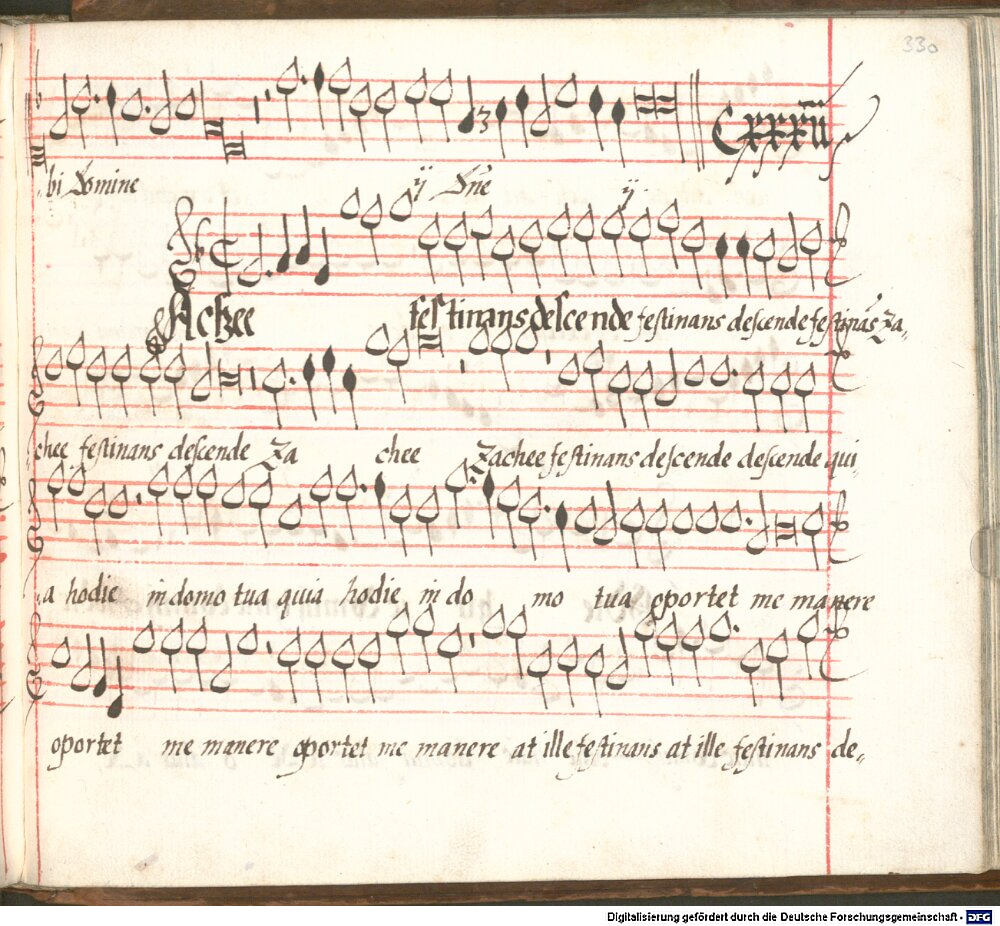 330
Cxxxiii
bi Domine ij Dñe ij
Zachee festinans descende festinans descende festinãs za-
chee festinans descende za chee zachee festinans descende descende qui-
a hodie in domo tua quia hodie in do mo tua oportet me manere
oportet me manere oportet me manere at ille festinans at ille festinans de-
Digitalisierung gefördert durch die Deutsche Forschungsgemeinschaft - DFG